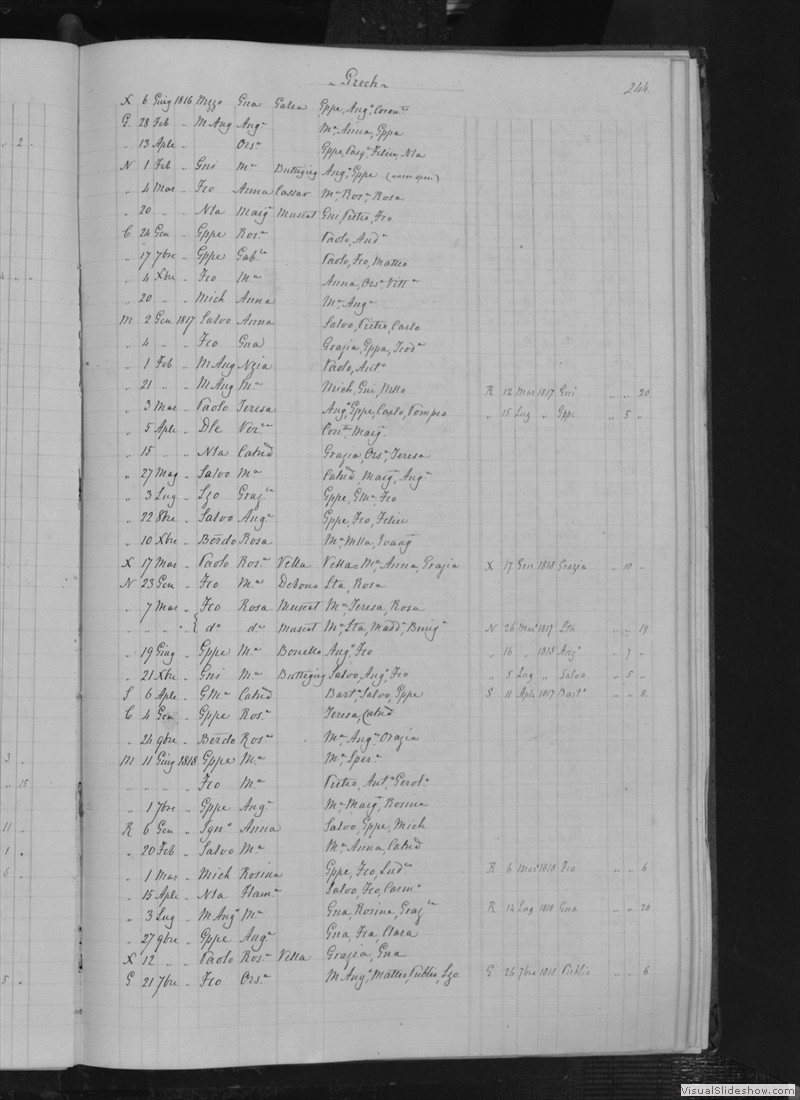 Grech
244.
X 6 Giug 1816 Mzzo Gna Galea Gppe, Angª, Coronta
G 28 Feb „ M Ang Angª Mª, Anna, Gppa
„ 13 Aple „ Orsª Gppe, Pasqª, Feliu, Nla
N 1 Feb „ Gni Mª Buttigieg Angª, Gppe
„ 4 Mar „ Fco Anna Cassar Mª, Rosª, Rosa
„ 20 „ „ Nla Marg Muscat Gni, Pietro, Fco
C 24 Gen „ Gppe Rosª Paolo, Andª
„ 17 7bre „ Gppe Gabla Paolo, Fco, Matteo
„ 4 Xbre „ Fco Mª Anna, Orsª, Vittª
„ 20 „ „ Mich Anna Mª, Angª
M 2 Gen 1817 Salvo Anna Salvo, Pietro, Carlo
„ 4 „ „ Fco Gna Grazia, Gppa, Teodª
„ 1 Feb „ M Ang Nzia Paolo, Antª
„ 21 „ „ M Ang Mª Mich, Gni, Mllo R 12 Mar 1817 Gni „ „ 20
„ 3 Mar „ Paolo Teresa Angª, Gppe, Carlo, Pompeo „ 15 Lug „ Gppe „ 5 „
„ 5 Aple „ Dle Verca Conta, Marg
„ 15 „ „ Nla Catnd Grazia, Orsª, Teresa
„ 27 Mag „ Salvo Mª Catnd, Marg, Angª
„ 3 Lug „ Lzo Grazla Gppe, GMª, Fco
„ 22 8bre „ Salvo Angª Gppe, Fco, Feliu
„ 10 Xbre „ Berdo Rosa Mª, Mlla, Evang
X 17 Mar „ Paolo Rosª Vella Vella Mª, Anna, Grazia X 17 Gen 1818 Grazia „ 10 „
N 23 Gen „ Fco Mª Debono Lta, Rosa
„ 7 Mar „ Fco Rosa Muscat Mª, Teresa, Rosa
„ „ „ „ { dº dª Muscat Mª, Lta, Maddª, Benigª N 26 Mar 1817 Lta „ „ 19
„ 19 Giug „ Gppe Mª Bonello Angª, Fco „ 16 „ 1818 Angª „ 7 „
„ 21 Xbre „ Gni Mª Buttigieg Salvo, Angª, Fco „ 5 Lug „ Salvo „ 5 „
S 6 Aple „ GMª Catnd Bartº, Salvo, Gppe S 11 Aple 1817 Bartº „ „ 8
C 4 Gen „ Gppe Rosª Teresa, Catnd
„ 24 9bre „ Berdo Rosª Mª, Angª, Orazia
M 11 Giug 1818 Gppe Mª Mª, Sperª
„ „ „ „ Fco Mª Pietro, Antª, Gerolª
„ 1 7bre „ Gppe Angª Mª, Marg, Rosina
R 6 Gen „ Ignº Anna Salvo, Gppe, Mich
„ 20 Feb „ Salvo Mª Mª, Anna, Catnd
„ 1 Mar „ Mich Rosina Gppe, Fco, Ludca R 6 Mar 1818 Fco „ „ 6
„ 15 Aple „ Nla Flamª Salvo, Fco, Carmª
„ 3 Lug „ M Angº Mª Gna, Rosina, Grazla R 14 Lug 1818 Gna „ „ 20
„ 27 9bre „ Gppe Angª Gna, Fca, Clara
X 12 „ „ Paolo Rosª Vella Grazia, Gna
G 21 7bre „ Fco Orsª M Angª, Matteo, Publio, Lzo G 26 7bre 1818 Publio „ „ 6
VisualSlideshow.com